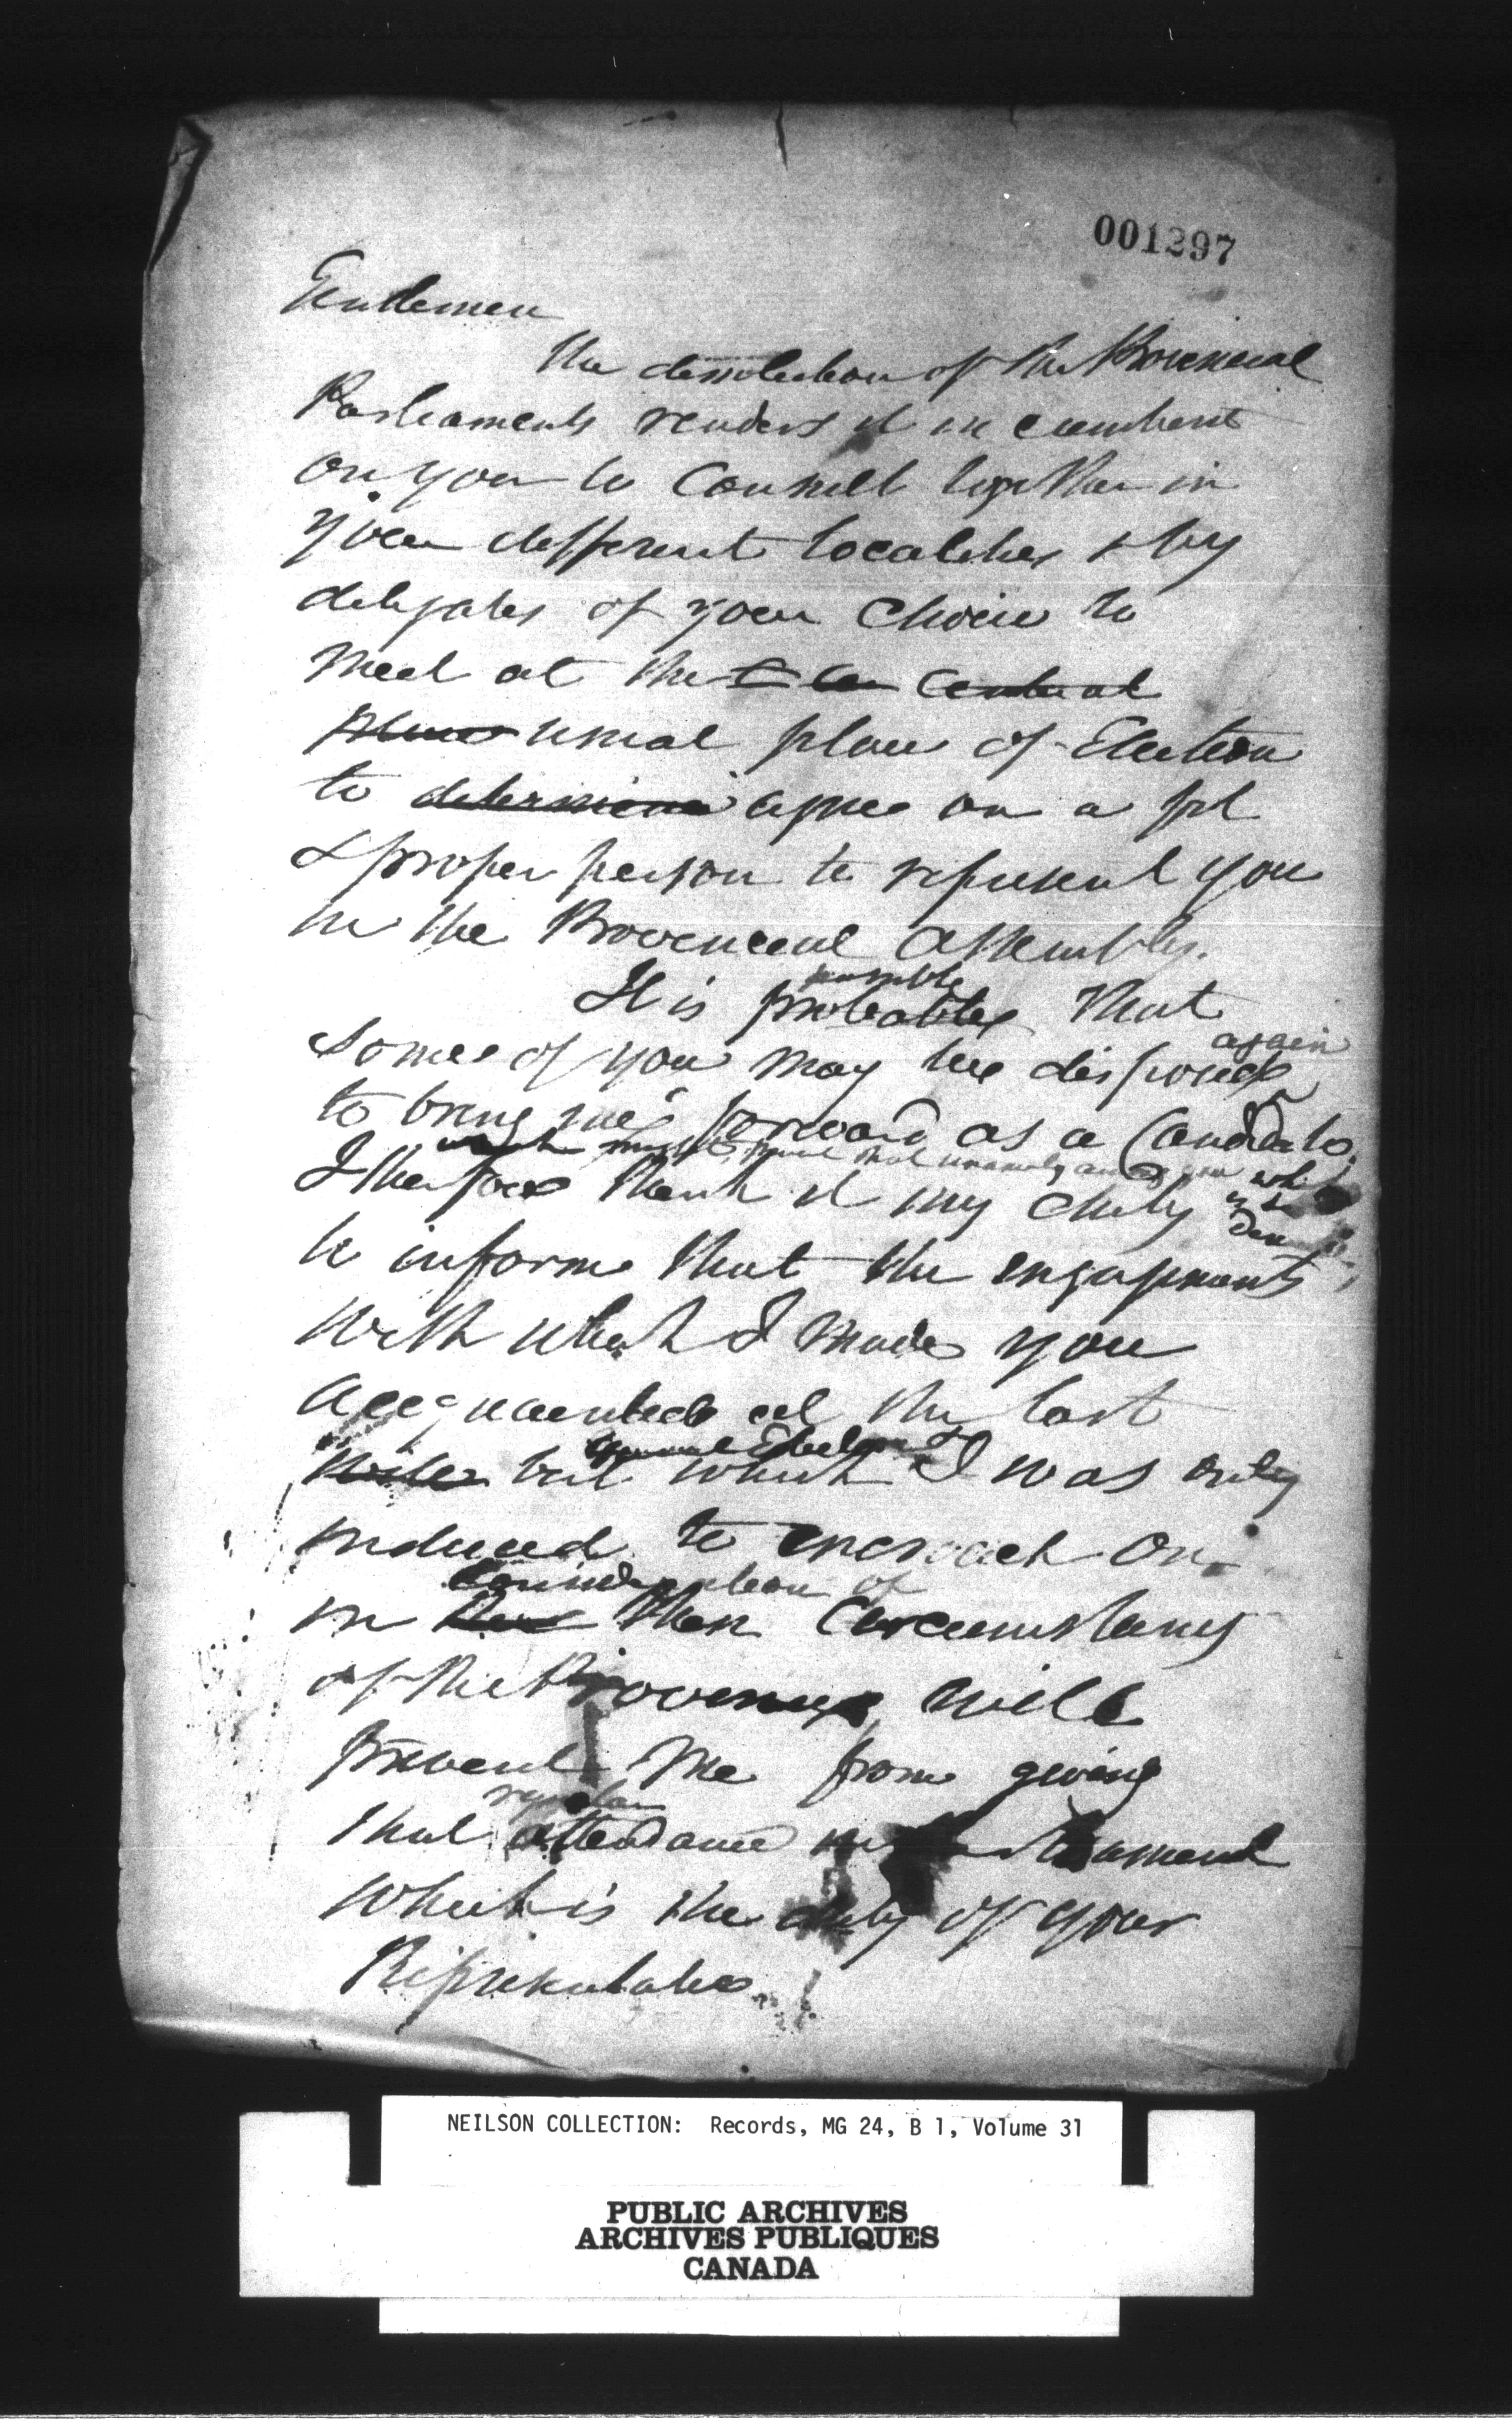 001297
Gentlemen
The dissolution of the Provincial
Parliaments renders it incumbent
on you to Consult together in
your different localities & by
delegates of your Choice to
meet at the Central
place usual place of Election
to determine agree on a fit
& proper person to represent you
in the Provincial Assembly.
possible
It is probable that
again
some of you may be disposed
to bring me forward as a Candidate.
might that unanimity which
I therefore think it my duty
to inform that the engagements
with which I made you
acquainted at the last
general Election &
but which I was only
induced to encroach on
Consideration of
in the then Circumstances
of the Province will
prevent me from giving
regular
that attendance in Parliament
which is the duty of your
Representative.
NEILSON COLLECTION: Records, MG 24, B 1, Volume 31
PUBLIC ARCHIVES
ARCHIVES PUBLIQUES
CANADA